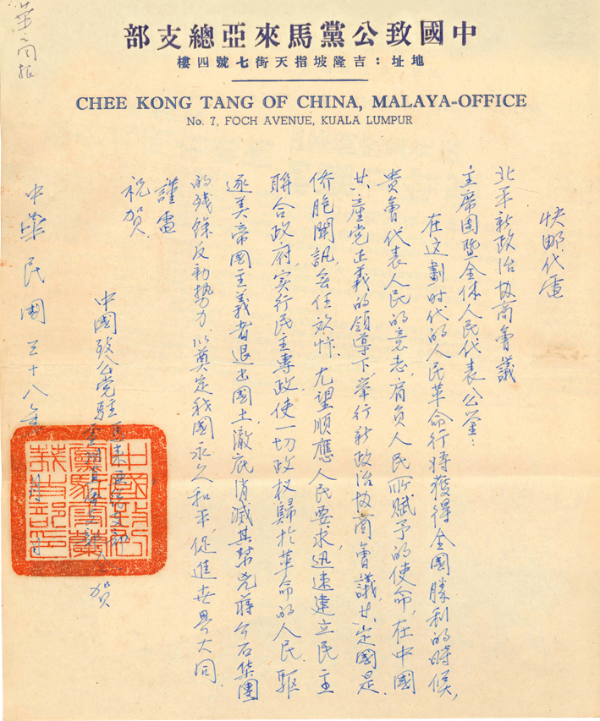 中國致公黨馬來亞總支部
地址：吉隆坡指天街七號四樓
CHEE KONG TANG OF CHINA, MALAYA-OFFICE
No. 7, FOCH AVENUE, KUALA LUMPUR
快郵代電
北平新政治協商會議
主席團暨全体人民代表公鑒：
在這劃时代的人民革命行將獲得全國勝利的時候，
貴會代表人民的意志，肩負人民所賦予的使命，在中國
共產党正義的領導下舉行新政治協商會議，共定國是，
侨胞聞訊，無任欣忭，尤望順應人民要求，迅速建立民主
聯合政府，实行民主專政，使一切政权歸於革命的人民，驅
逐美帝國主義者退出國土，澈底消滅其幫兇蔣介石集團
的残餘反動勢力，以奠定我國永久和平，促進世界大同。
謹電
祝賀
中國致公党駐馬來亞總支部
賀
中華民國三十八年